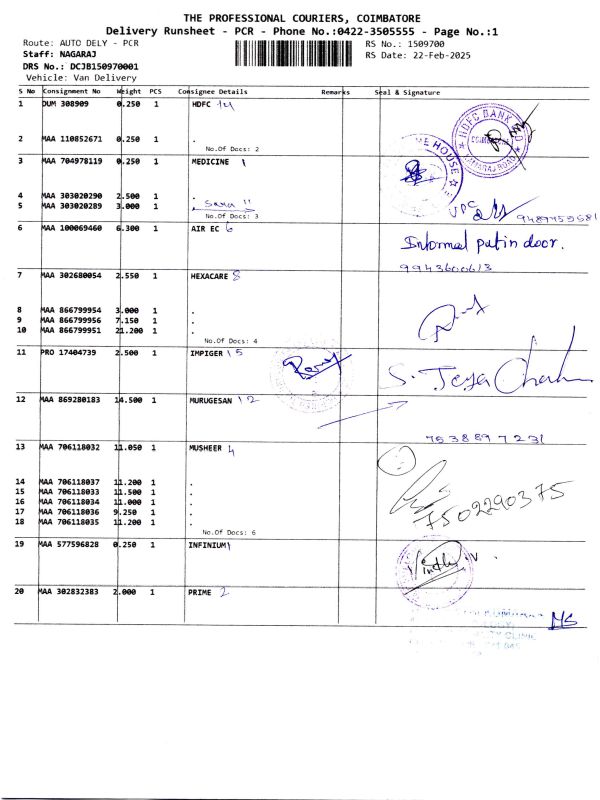 THE PROFESSIONAL COURIERS, COIMBATORE
Delivery Runsheet - PCR - Phone No.:0422-3505555 - Page No.:1
Route: AUTO DELY - PCR
RS No.: 1509700
Staff: NAGARAJ
RS Date: 22-Feb-2025
DRS No.: DCJB150970001
Vehicle: Van Delivery
S No Consignment No Weight PCS Consignee Details Remarks Seal & Signature
1 DUM 308909 0.250 1 HDFC 14
HDFC BANK
2 MAA 110852671 0.250 1 .
No.Of Docs: 2
3 MAA 704978119 0.250 1 MEDICINE 1
HOUSE
4 MAA 303020290 2.500 1 .
5 MAA 303020289 3.000 1 . Sara 11
No.Of Docs: 3
6 MAA 100069460 6.300 1 AIR EC 6
Informed put in door.
7 MAA 302680054 2.550 1 HEXACARE 8
8 MAA 866799954 3.000 1 .
9 MAA 866799956 7.150 1 .
10 MAA 866799951 21.200 1 .
No.Of Docs: 4
11 PRO 17404739 2.500 1 IMPIGER 15
12 MAA 869280183 14.500 1 MURUGESAN 12
7538897231
13 MAA 706118032 11.050 1 MUSHEER 4
14 MAA 706118037 11.200 1 .
15 MAA 706118033 11.500 1 .
16 MAA 706118034 11.000 1 .
7502290375
17 MAA 706118036 9.250 1 .
18 MAA 706118035 11.200 1 .
No.Of Docs: 6
19 MAA 577596828 0.250 1 INFINIUM 1
20 MAA 302832383 2.000 1 PRIME 2
MS